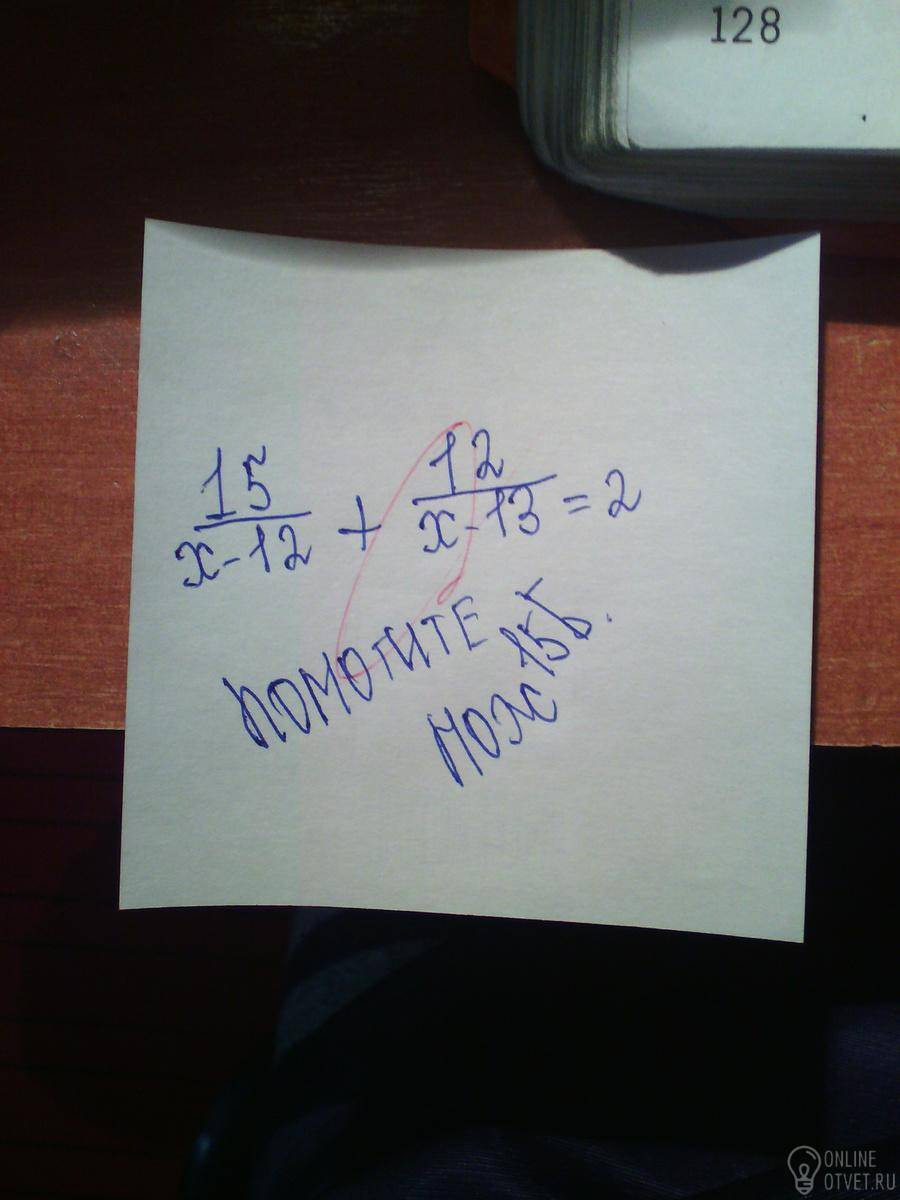 128
15/(x-12) + 12/(x-13) = 2
ПОМОГИТЕ
ПОЖ 15Б.
ONLINE
OTVET.RU